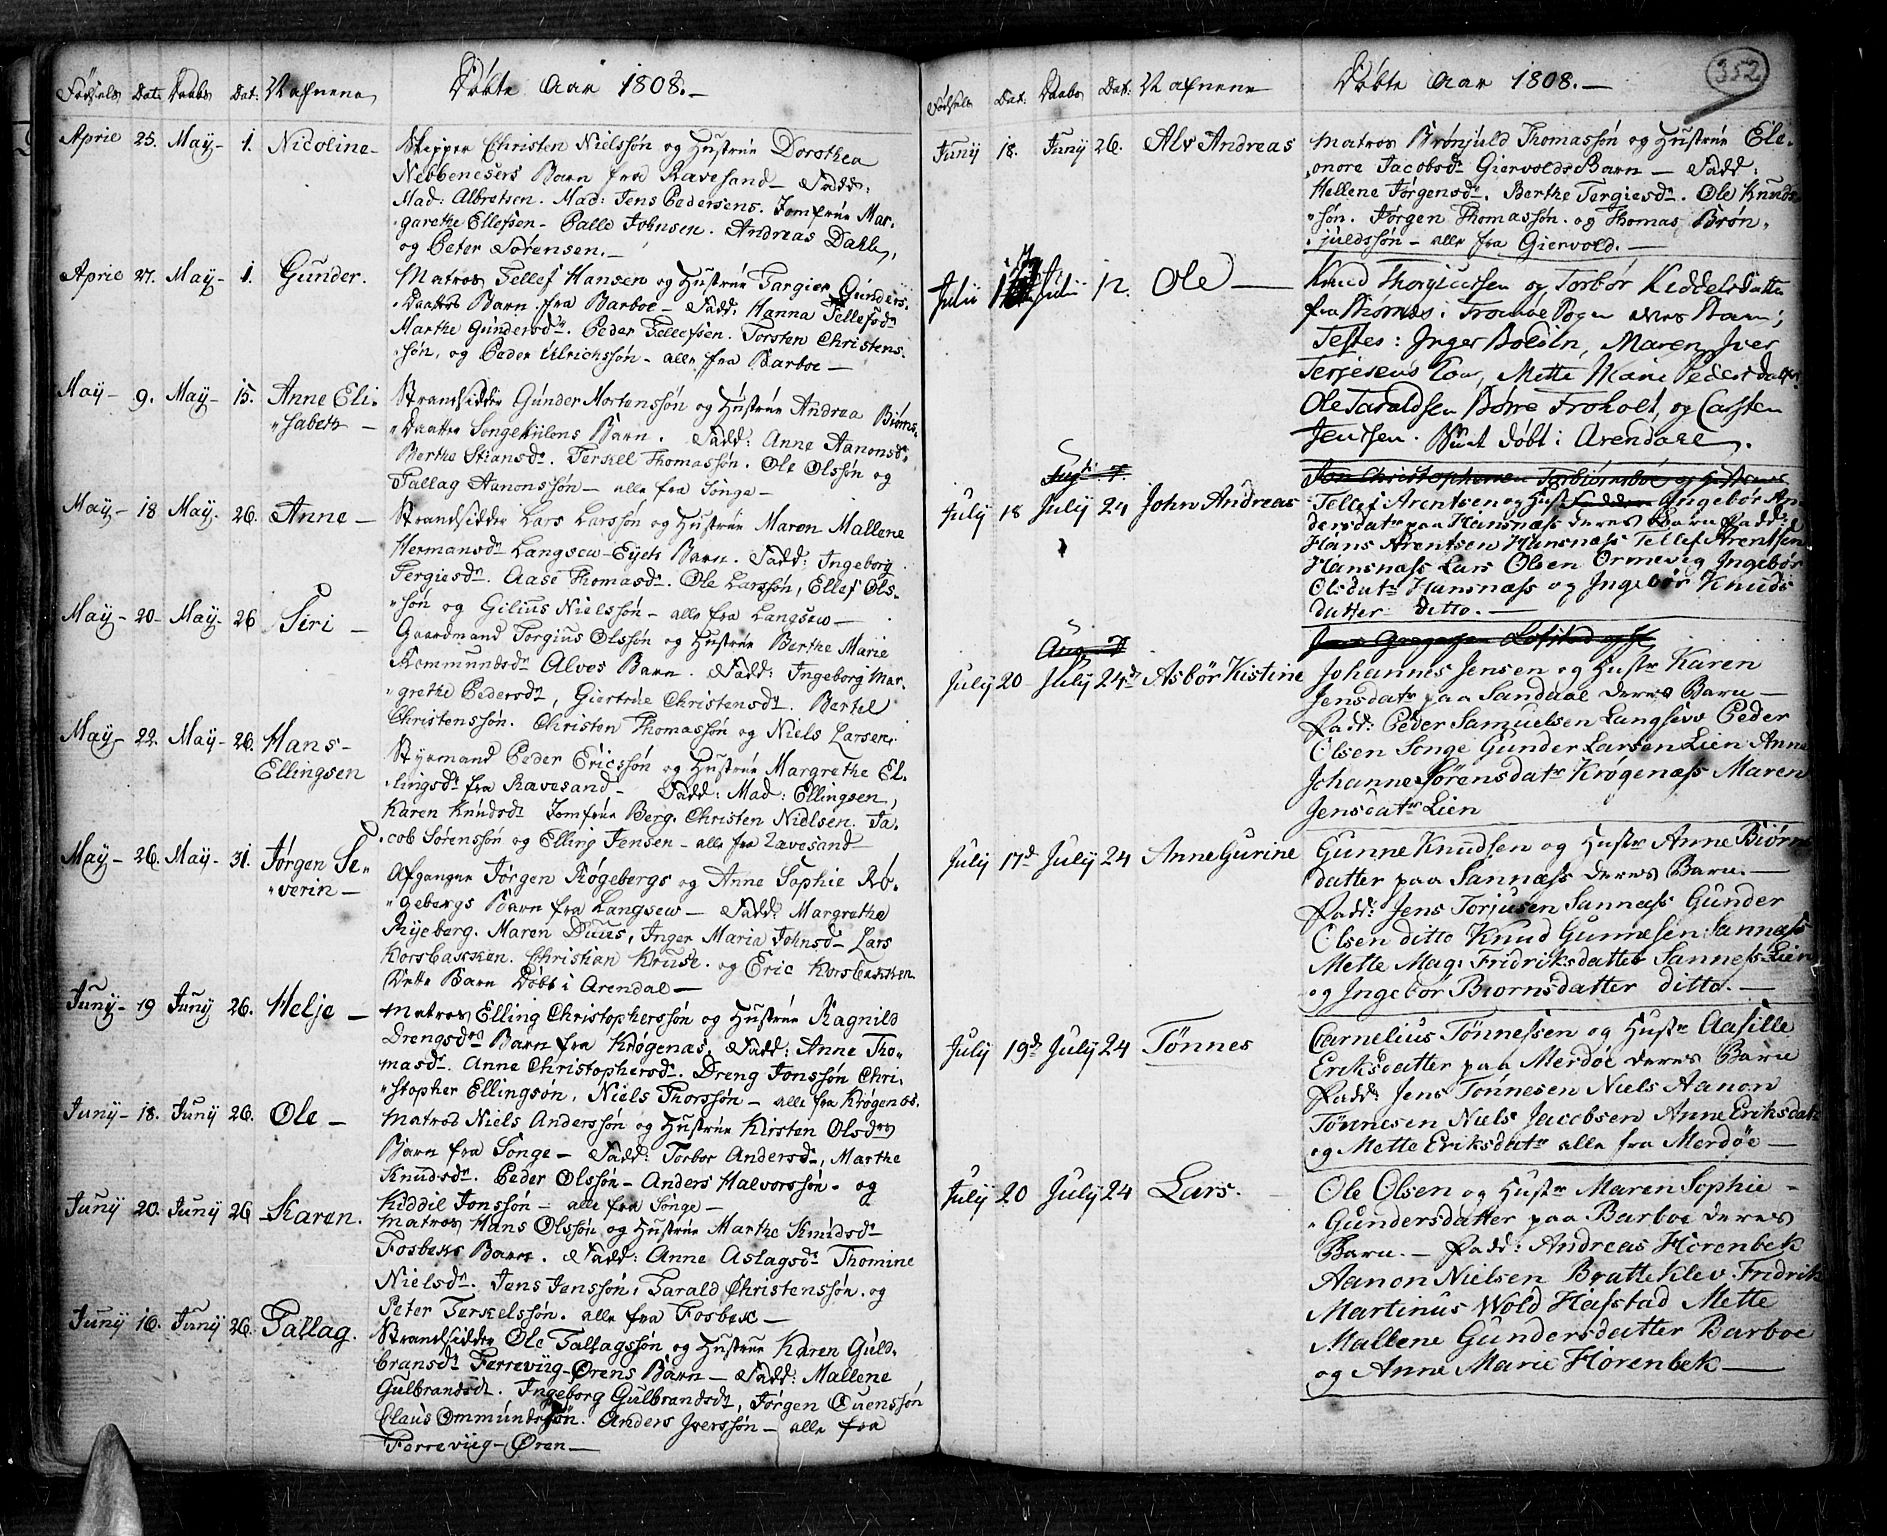 Fødsels Dat: Daabs Dat: Nafnene Døbte Aar 1808.
April 25. May 1. Nicoline Skipper Christen Nielssøn og Hustrue Dorothea
Nebbenesers Barn fra Ravesand — Fadd:
Mad: Albretsen. Mad: Jens Pedersens. Jomfrue Mar-
garethe Ellefsen. Palle Johnsen. Andreas Dahl,
og Peter Sørensen.
April 27. May 1. Gunder. Matros Tellef Hansen og Hustrue Targier Gunders
Daatter Barn fra Barboe — Fadd: Hanna Tellefsdr
Marthe Gundersdr. Peder Tellefsen. Torsten Christens-
søn, og Peder Ulrichssøn — alle fra Barboe —
May 9. May 15. Anne Eli- Strandsidder Gunder Mortenssøn og Hustrue Andrea Biørns-
sabeth — Daatter Songekiilens Barn. Fadd: Anne Aanonsdr
Berthe Stiansdr. Terkel Thomassøn. Ole Olssøn og
Tallag Aanonssøn — alle fra Songe —
May 18 May 26. Anne — Strandsidder Lars Larssøn og Hustrue Maren Mallene
Hermansdr Langsew-Eyets Barn. Fadd: Ingeborg
Tergiesdr. Aase Thomasdr. Ole Larssøn, Ellef Ols-
søn og Gilius Nielssøn — alle fra Langsew —
May 20 May 26 Siri — Gaardmand Torgius Olssøn og Hustrue Berthe Marie
Rommundsdr Alves Barn. Fadd: Ingeborg Mar-
grethe Pedersdr, Giertrue Christensdr. Bertel
Christenssøn. Christen Thomassøn og Niels Larsen.
May 22. May 26. Hans Styrmand Peder Ericssøn og Hustrue Margrethe El-
Ellingsen lingsdr fra Ravesand — Fadd: Mad: Ellingsen,
Karen Knudsdr Jomfrue Berg. Christen Nielsen. Ja-
cob Sørenssøn og Elling Jensen — alle fra Ravesand —
May 26. May 31. Jørgen Se- Afgangne Jørgen Røgebergs og Anne Sophie Rø-
verin — gebergs Barn fra Langsew — Fadd: Margrethe
Ryeberg. Maren Duus, Inger Maria Johnsd. Lars
Korsbakken. Christian Kruse. og Eric Korsbakken
Dette Barn Døbt i Arendal —
Juny 19 Juny 26. Helje — Matros Elling Christopherssøn og Hustrue Ragnild
Drengsdrs Barn fra Krøgenæs. Fadd: Anne Tho-
masdr. Anne Christophersdr. Dreng Jonssøn Chri-
stopher Ellingsøn, Niels Thorssøn — alle fra Krøgenæs.
Juny 18. Juny 26. Ole — Matros Niels Anderssøn og Hustrue Kirsten Olsdrs
Barn fra Songe — Fadd: Torbor Andersdr, Marthe
Knudsdr. Peder Olssøn — Anders Halvorssøn — og
Kiddil Jonssøn — alle fra Songe —
Juny 20. Juny 26 Karen. Matros Hans Olssøn og Hustrue Marthe Knudsdr
Fosbeks Barn. Fadd: Anne Aslagsdr Thomine
Nielsdr. Jens Jenssøn, Tarald Christenssøn. og
Peter Terkelssøn. alle fra Fosbek —
Juny 16. Juny 26. Tallag. Strandsidder Ole Tallagssøn og Hustrue Karen Guld-
bransdr Ferreviig-Ørens Barn — Fadd: Mallene
Gulbrandsdt. Ingeborg Gulbrandsdt, Jørgen
Claus Ommundssøn. Anders Iverssøn — alle fra
Ferreviig-Øren —
352
Fødsels Dat: Daabs Dat: Nafnene Døbte Aar 1808. —
Juny 18. Juny 26. Alv Andreas Matros Brønjuld Thomassøn og Hustrue Ele-
onore Jacobsdr Giervolds Barn — Fadd:
Hellene Jørgensdr. Berthe Tergiesdr. Ole Knuds-
søn. Jørgen Thomassøn. og Thomas Brøn-
juldssøn — alle fra Giervold. —
Julii Julii 12. Ole — Knud Thorgiussen og Torbør Kiddelsdatter
fra i Tromøe Sogn deres Barn;
Testes: Inger Maren Iver
Terjesens Mette Marie Pedersdatter
Ole Taraldsen Børre Froholt, og Carsten
Jenssen. Blivt døbt i Arendahl.
July 18 July 24 John Andreas Tellef Arentsen og Hust Ingebør An-
dersdatr paa Hansnæss deres Barn Fadd:
Hans Arentsen Hansnæss Tellef Arentsen
Hansnæss Lars Olsen Ormevig Ingebør
Olsdatr Hansnæss og Ingebør Knuds
datter ditto. —
July 20 July 24d Asbør Kistine Johannes Jensen og Hustr Karen
Jensdatr paa Sandaae deres Barn —
Fadd: Peder Samuelsen Langsevv Peder
Olsen Songe Gunder Larsen Lien Anne
Johanne Sørensdatr Krøgenæss Maren
Jensdatr Lien
July 17d July 24 Anne Gurine Gunne Knudsen og Hustr Anne Biørns
datter paa Sannæss deres Barn. —
Fadd: Jens Torjusen Sannæss Gunder
Olsen ditto Knud Gunnesen Sannæss
Mette Mag: Fridriksdatter Sannæss Lien
og Ingebør Biørnsdatter ditto. —
July 19d July 24 Tønnes Carnelius Tønnessen og Hustr Aasille
Eriksdatter paa Merdøe deres Barn
Fadd: Jens Tønnesen Niels Aanon
Tønnesen Niels Jacobsen Anne Eriksdatr
og Mette Eriksdatr alle fra Merdøe —
July 20 July 24 Lars. Ole Olsen og Hustr Maren Sophie
Gundersdatter paa Barboe deres
Barn. — Fadd: Andreas Hørenbek
Aanon Nielsen Bratteklev Fridrik
Martinus Wold Hafstad Mette
Mallene Gundersdatter Barboe
og Anne Marie Hørenbek —